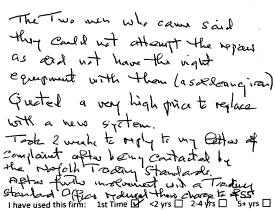 The Two men who came said
they could not attempt the repair
as did not have the right
equipment with them (a soldering iron)
Quoted a very high price to replace
with a new system.
Took 2 weeks to reply to my letter of
complaint after being contacted by
the Norfolk Trading Standards.
After further involvement with a Trading
Standard Officer reduced their charge to £55
I have used this firm: 1st Time <2 yrs 2-4 yrs 5+ yrs